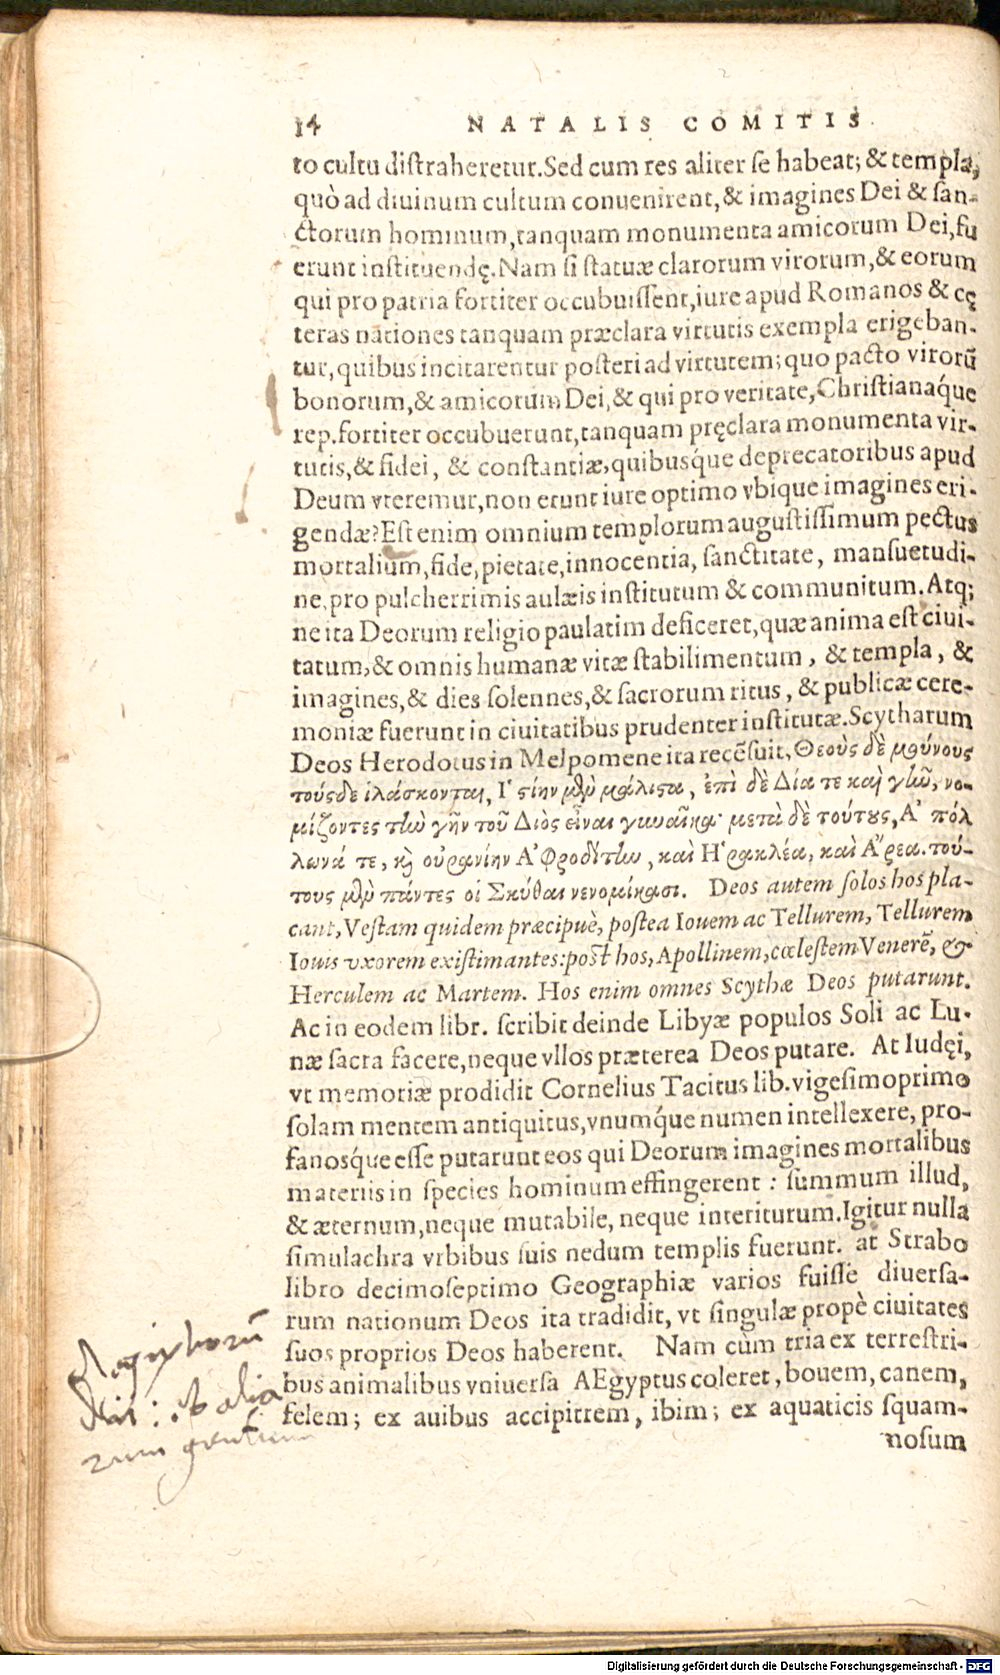 14 NATALIS COMITIS
to cultu distraheretur. Sed cum res aliter se habeat; & templa,
quò ad diuinum cultum conuenirent, & imagines Dei & san-
ctorum hominum, tanquam monumenta amicorum Dei, fu
erunt instituendę. Nam si statuæ clarorum virorum, & eorum
qui pro patria fortiter occubuissent, iure apud Romanos & cę
teras nationes tanquam præclara virtutis exempla erigeban-
tur, quibus incitarentur posteri ad virtutem; quo pacto virorũ
bonorum, & amicorum Dei, & qui pro veritate, Christianaq́ue
rep. fortiter occubuerunt, tanquam pręclara monumenta vir-
tutis, & fidei, & constantiæ, quibusq́ue deprecatoribus apud
Deum vteremur, non erunt iure optimo vbique imagines eri-
gendæ? Est enim omnium templorum augustissimum pectus
mortalium, fide, pietate, innocentia, sanctitate, mansuetudi-
ne, pro pulcherrimis aulæis institutum & communitum. Atq;
ne ita Deorum religio paulatim deficeret, quæ anima est ciui-
tatum, & omnis humanæ vitæ stabilimentum, & templa, &
imagines, & dies solennes, & sacrorum ritus, & publicæ cere-
moniæ fuerunt in ciuitatibus prudenter institutæ. Scytharum
Deos Herodotus in Melpomene ita recẽsuit, Θεοὺς δὲ μούνους
τούσδε ἱλάσκονται, Ἱστίην μὲν μάλιστα, ἐπὶ δὲ Δία τε καὶ γῆν, νο-
μίζοντες τὴν γῆν τοῦ Διὸς εἶναι γυναῖκα· μετὰ δὲ τούτους, Ἀπόλ
λωνά τε, καὶ οὐρανίην Ἀφροδίτην, καὶ Ἡρακλέα, καὶ Ἄρεα. τού-
τους μὲν πάντες οἱ Σκύθαι νενομίκασι. Deos autem solos hos pla-
cant, Vestam quidem præcipuè, postea Iouem ac Tellurem, Tellurem
Iouis vxorem existimantes: post hos, Apollinem, cœlestem Venerẽ, &
Herculem ac Martem. Hos enim omnes Scythæ Deos putarunt.
Ac in eodem libr. scribit deinde Libyæ populos Soli ac Lu-
næ sacra facere, neque vllos præterea Deos putare. At Iudęi,
vt memoriæ prodidit Cornelius Tacitus lib. vigesimoprimo
solam mentem antiquitus, vnumq́ue numen intellexere, pro-
fanosq́ue esse putarunt eos qui Deorum imagines mortalibus
materiis in species hominum effingerent: summum illud,
& æternum, neque mutabile, neque interiturum. Igitur nulla
simulachra vrbibus suis nedum templis fuerunt. at Strabo
libro decimoseptimo Geographiæ varios fuisse diuersa-
rum nationum Deos ita tradidit, vt singulæ propè ciuitates
suos proprios Deos haberent. Nam cùm tria ex terrestri-
bus animalibus vniuersa AEgyptus coleret, bouem, canem,
felem; ex auibus accipitrem, ibim; ex aquaticis squam-
nosum
Aegyptiorũ
alia
rum gentium
Digitalisierung gefördert durch die Deutsche Forschungsgemeinschaft - DFG